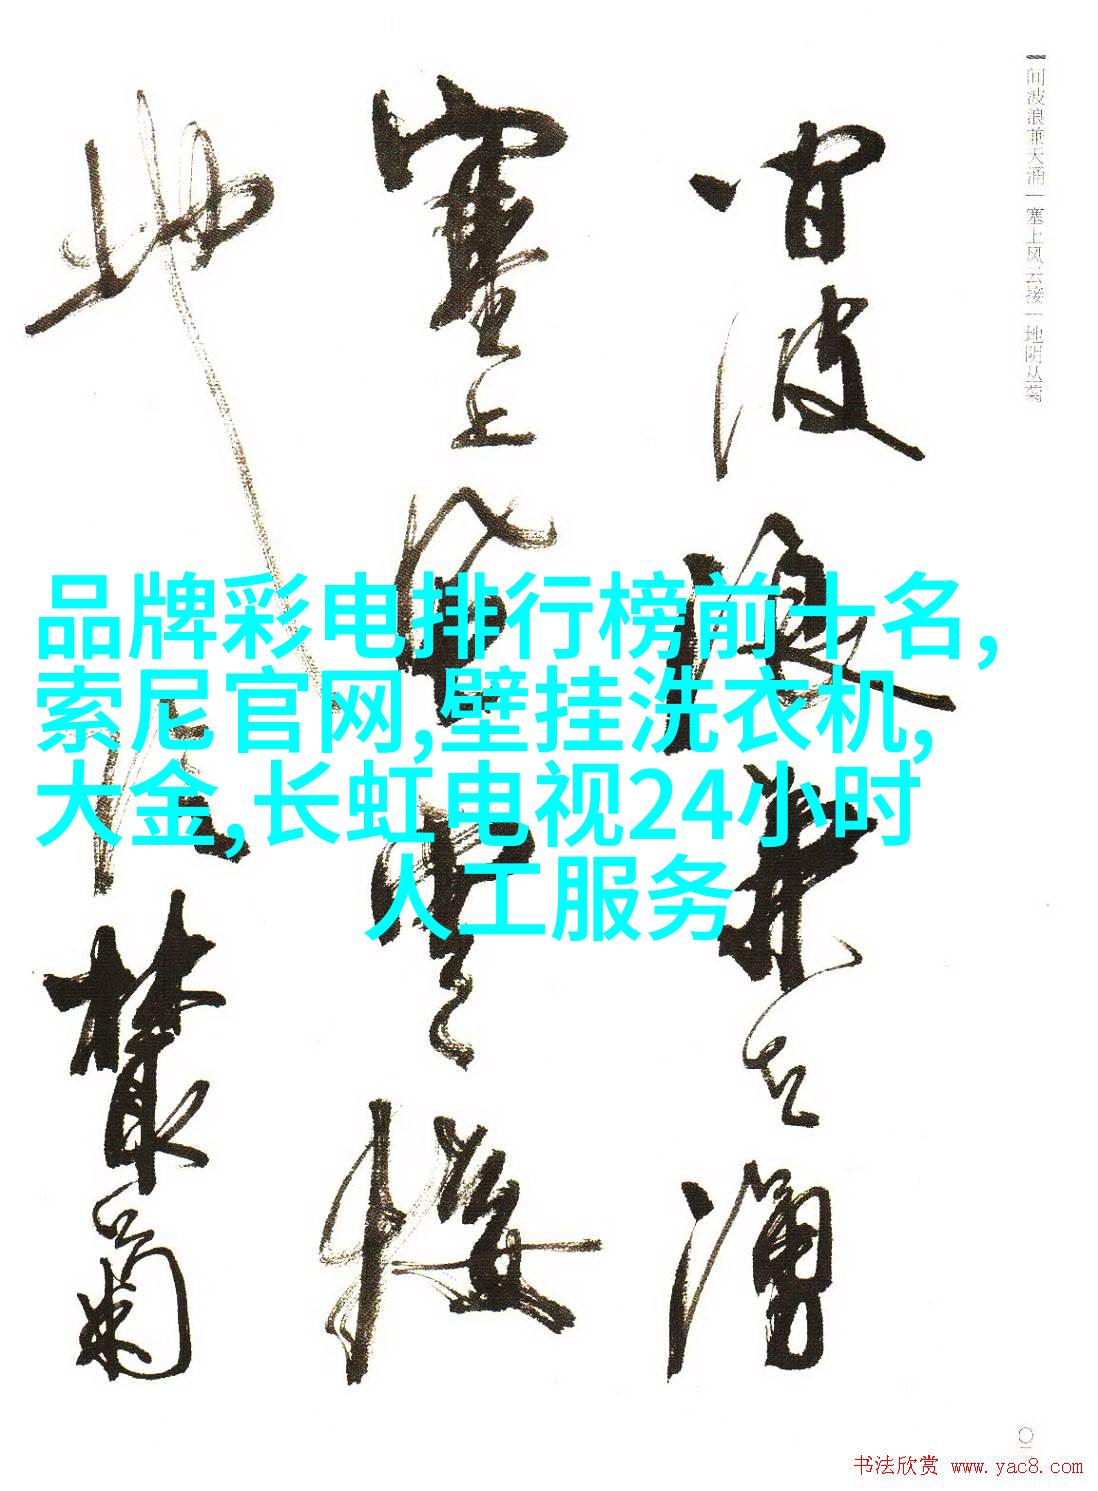 间波浪兼天涌｜塞上风云接｜地阴丛菊
间波浪兼天涌
塞上风云接
地阴丛菊
品牌彩电排行榜前十名,
索尼官网,壁挂洗衣机,
大金,长虹电视24小时
人工服务
书法欣赏 www.yac8.com